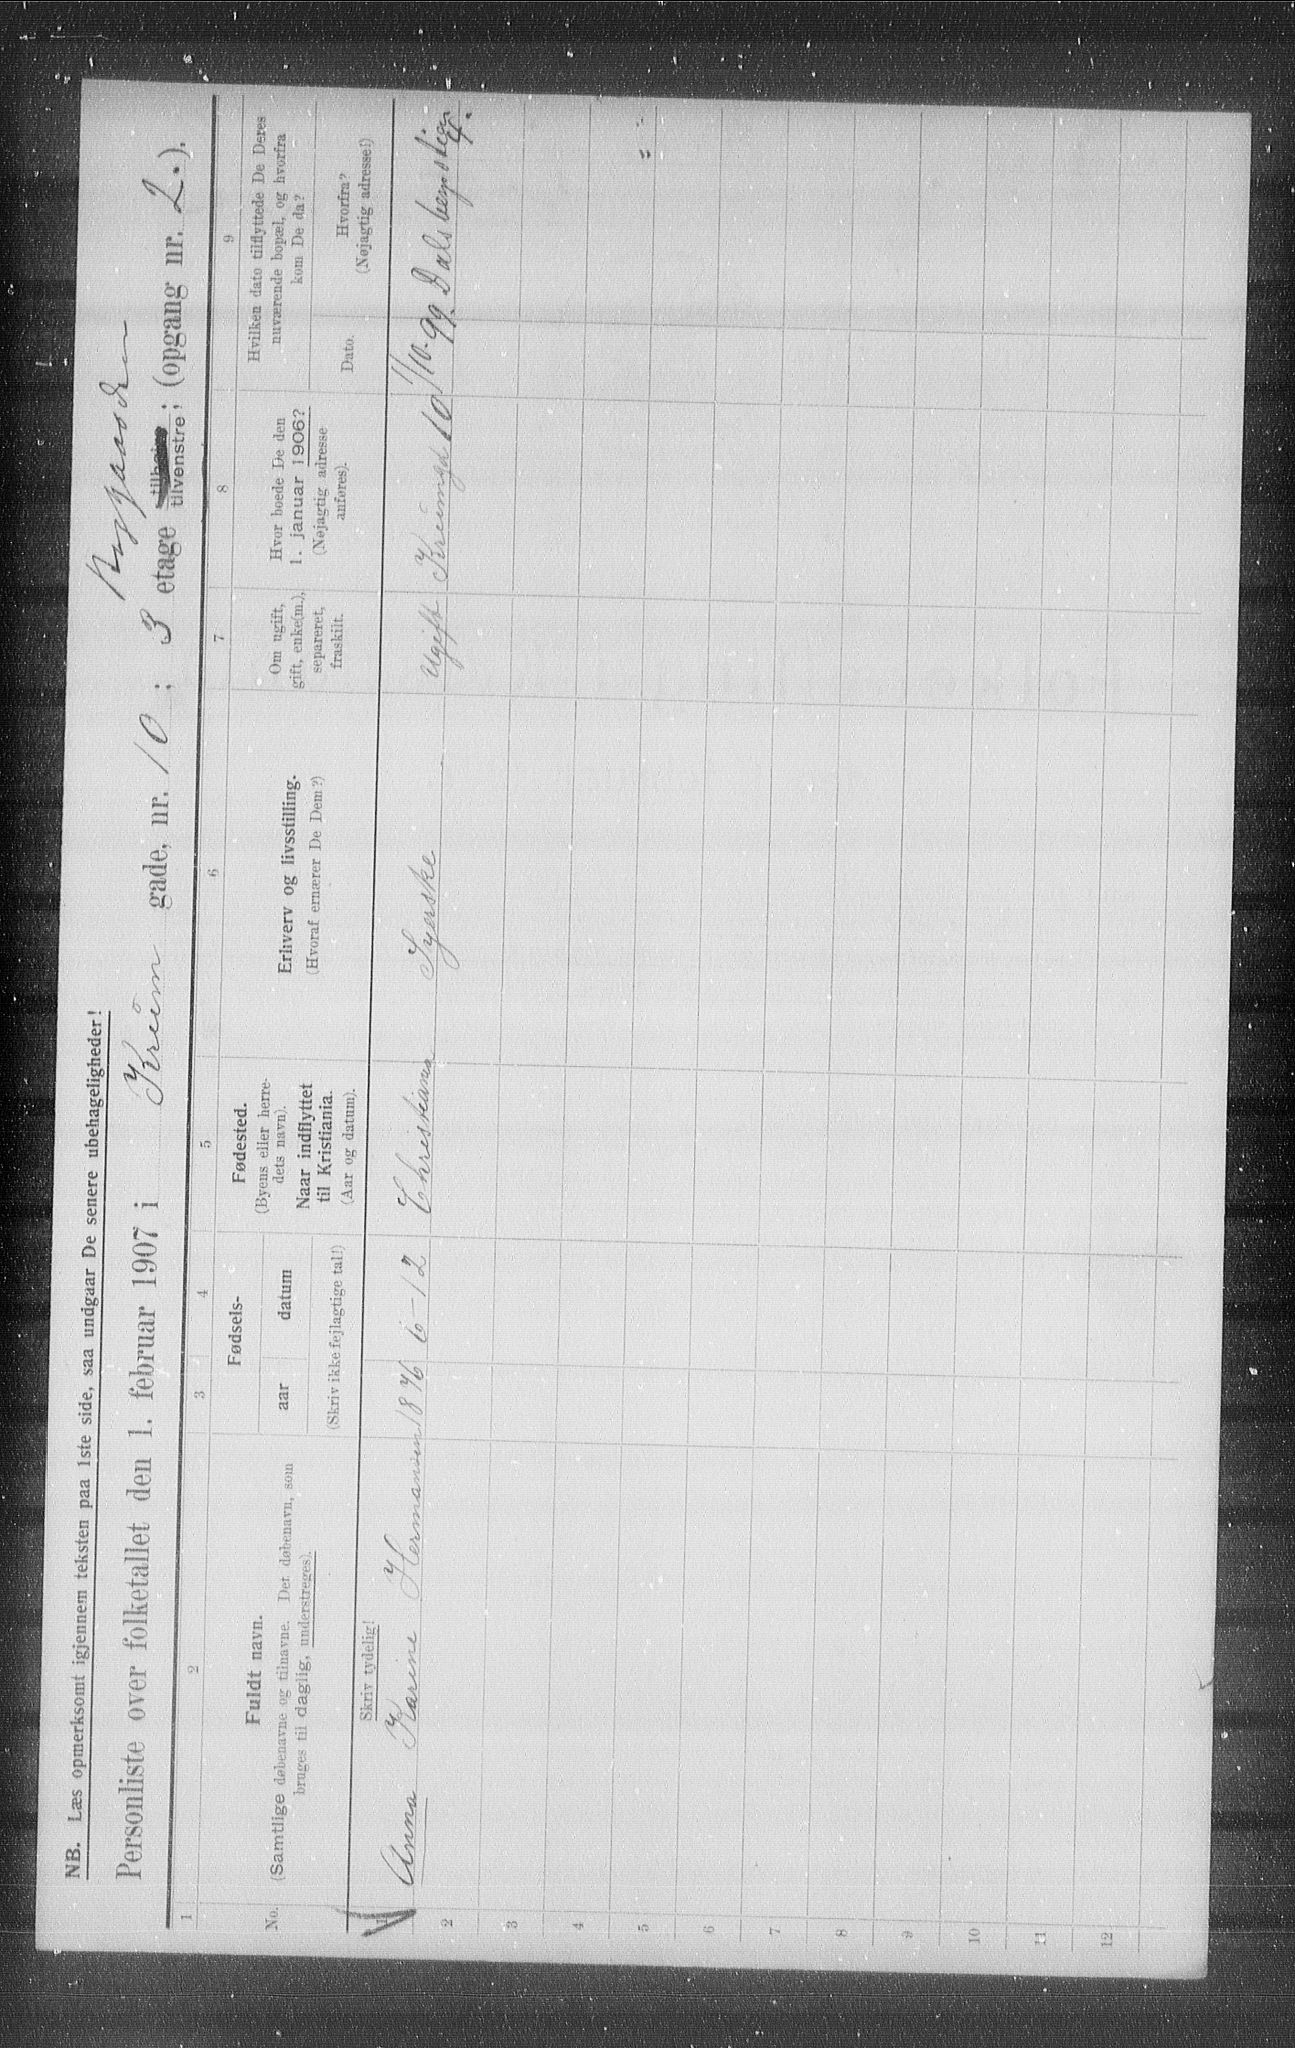 NB. Læs opmerksomt igjennem teksten paa 1ste side, saa undgaar De senere ubehageligheder!
Personliste over folketallet den 1. februar 1907 i Kriüm gade, nr. 10 ; 3 etage tilvenstre; (opgang nr. 2.).
1 2 3 4 5 6 7 8 9
No.
Fuldt navn.
(Samtlige døbenavne og tilnavne. Det døbenavn, som
bruges til daglig, understreges).
Skriv tydelig!
Fødsels-
aar datum
(Skriv ikke fejlagtige tal!)
Fødested.
(Byens eller herre-
dets navn).
Naar indflyttet
til Kristiania.
(Aar og datum).
Erhverv og livsstilling.
(Hvoraf ernærer De Dem?)
Om ugift,
gift, enke(m.),
separeret,
fraskilt.
Hvor boede De den
1. januar 1906?
(Nøjagtig adresse
anføres).
Hvilken dato tilflyttede De Deres
nuværende bopæl, og hvorfra
kom De da?
Dato.
Hvorfra?
(Nøjagtig adresse!)
1 Anna Karine Hermansen 1876 6-12 Christiania Syerske Ugift Kriümgd 10 1/10-99. Dalsbergstien 4.
2
3
4
5
6
7
8
9
10
11
12